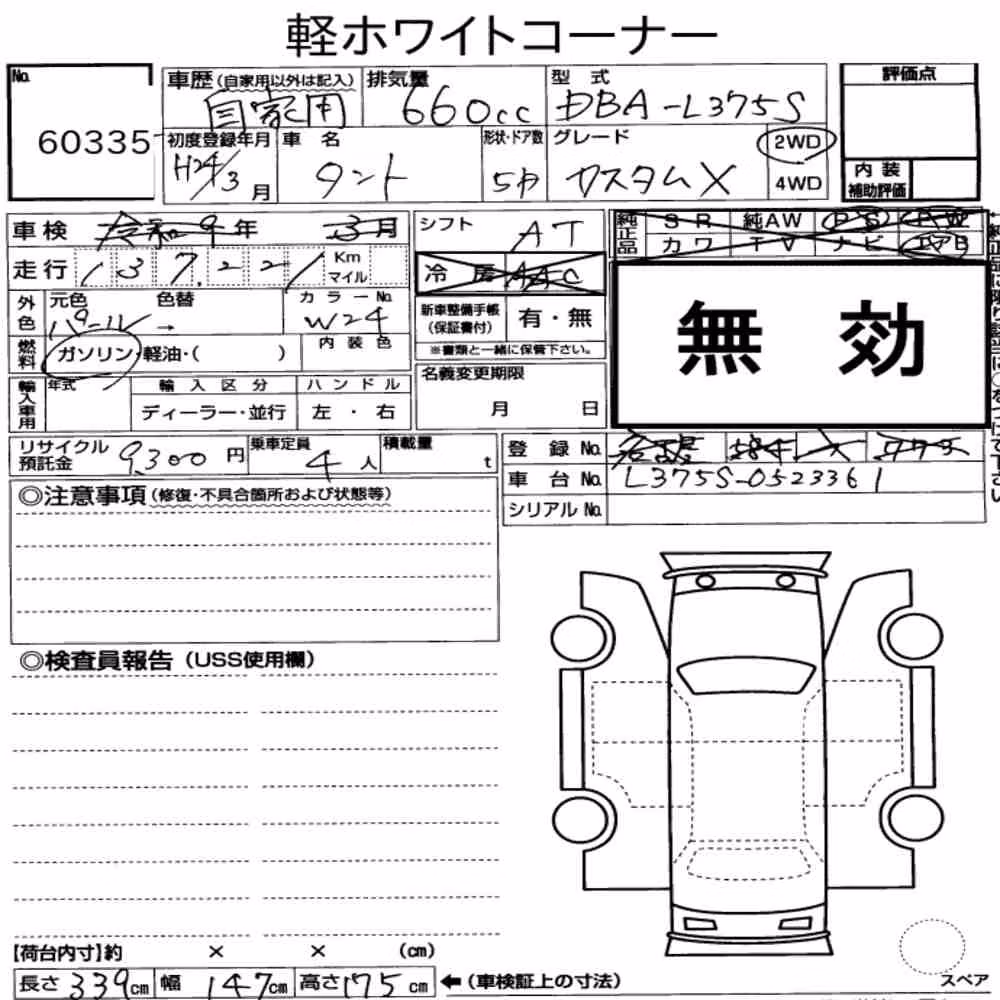 軽ホワイトコーナー
No. 60335
車歴(自家用以外は記入) 排気量 型式 評価点
自家用 660cc DBA-L375S
初度登録年月 車名 形状・ドア数 グレード 2WD
H24/3月 タント 5D カスタムX 4WD
内装補助評価
車検 令和9年 3月 シフト AT 純正品 SR 純AW PS PW
カワ TV ナビ エアB
走行 137,221 Km マイル 冷房 AAC
外色 元色 色替 カラーNo. 新車整備手帳(保証書付) 有・無
パール → W24
無効
燃料 ガソリン・軽油・( ) 内装色 ※書類と一緒に保管下さい。
輸入車用 年式 輸入区分 ハンドル 名義変更期限
ディーラー・並行 左・右 月 日
リサイクル預託金 9,300円 乗車定員 4人 積載量 t
登録No. 名古屋 584
車台No. L375S-0523361
シリアルNo.
◎注意事項(修復・不具合箇所および状態等)
◎検査員報告(USS使用欄)
【荷台内寸】約 × × (cm)
長さ 339cm 幅 147cm 高さ 175cm ←(車検証上の寸法)
スペア